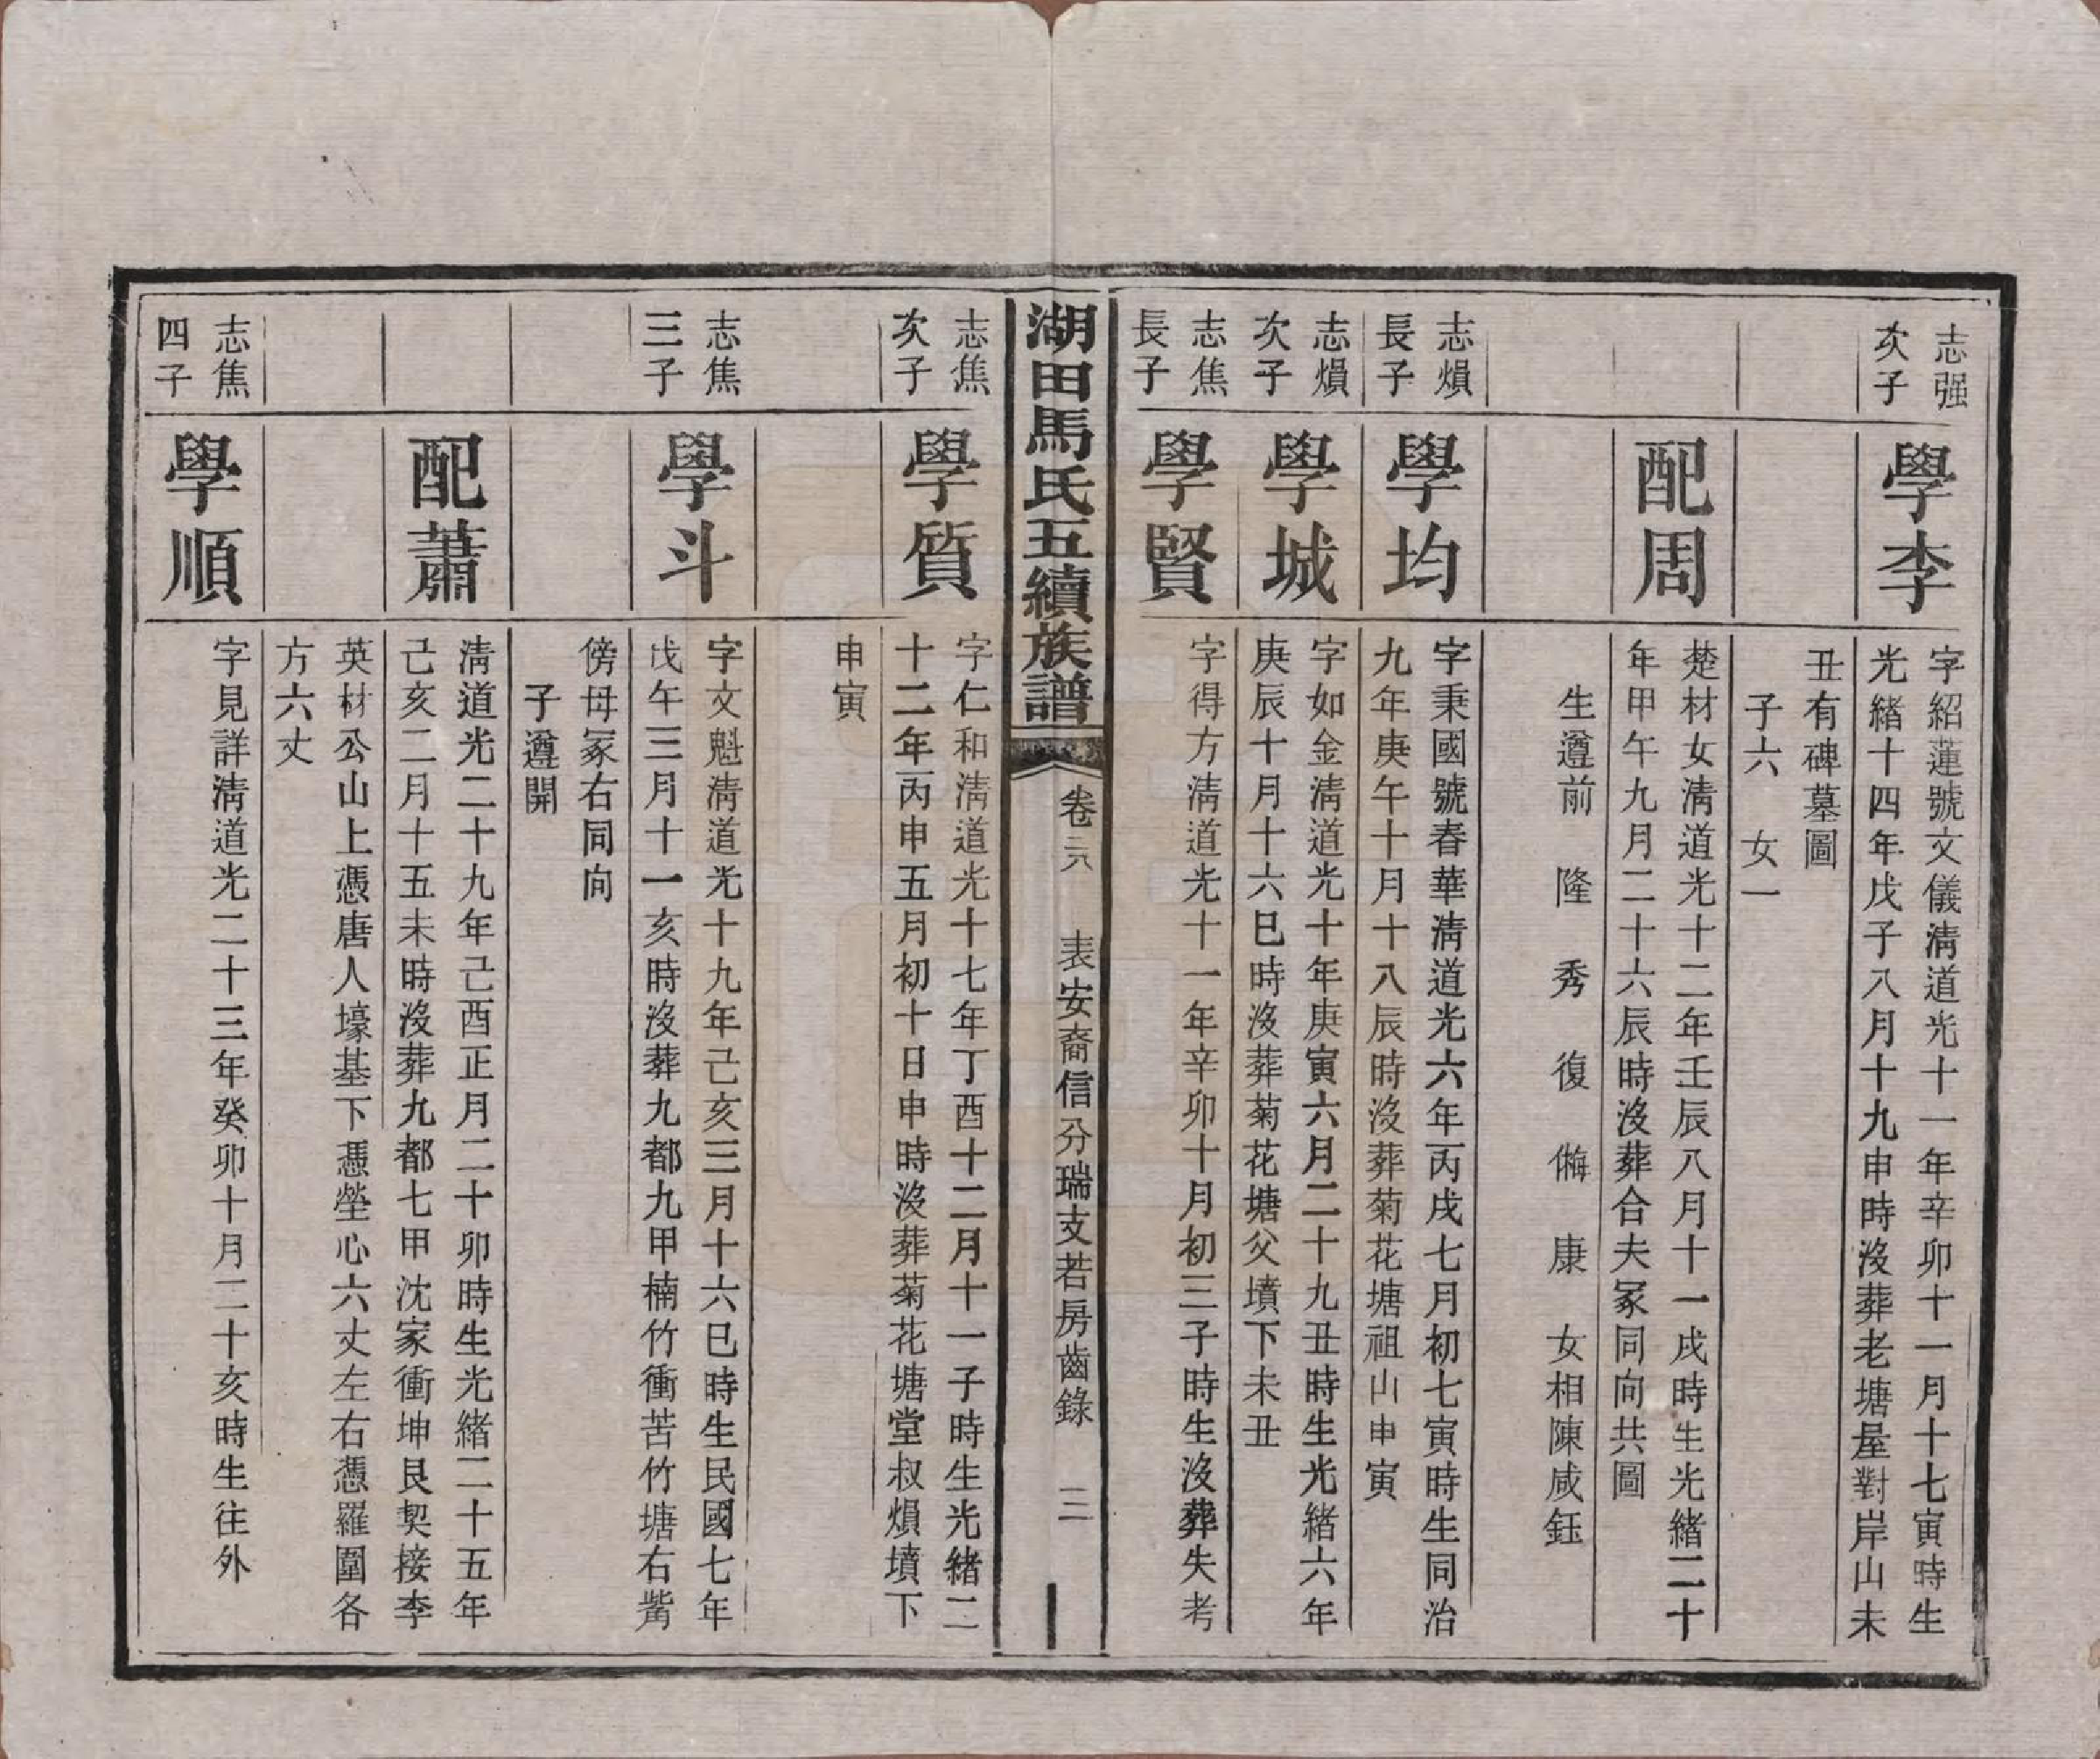 志强
次子
學李
字紹蓮號文儀淸道光十一年辛卯十一月十七寅時生
光緒十四年戊子八月十九申時沒葬老塘屋對岸山未
丑有碑墓圖
子六　女一
配周
楚材女淸道光十二年壬辰八月十一戌時生光緒二十
年甲午九月二十六辰時沒葬合夫冢同向共圖
生遵前　隆　秀　復　康　女相陳咸鈺
志熉
長子
學均
字秉國號春華淸道光六年丙戌七月初七寅時生同治
九年庚午十月十八辰時沒葬菊花塘祖山申寅
志熉
次子
學城
字如金淸道光十年庚寅六月二十九丑時生光緒六年
庚辰十月十六巳時沒葬菊花塘父墳下未丑
志焦
長子
學賢
字得方淸道光十一年辛卯十月初三子時生沒葬失考
湖田馬氏五續族譜
卷六　表安裔信分瑞支若房齒錄　三
志焦
次子
學質
字仁和淸道光十七年丁酉十二月十一子時生光緒二
十二年丙申五月初十日申時沒葬菊花塘堂叔熉墳下
申寅
志焦
三子
學斗
字文魁淸道光十九年己亥三月十六巳時生民國七年
戊午三月十一亥時沒葬九都九甲楠竹衝苦竹塘右觜
傍母冢右同向
子遵開
配蕭
淸道光二十九年己酉正月二十卯時生光緒二十五年
己亥二月十五未時沒葬九都七甲沈家衝坤艮契接李
英材公山上憑唐人壕基下憑塋心六丈左右憑羅圍各
方六丈
志焦
四子
學順
字見詳淸道光二十三年癸卯十月二十亥時生往外